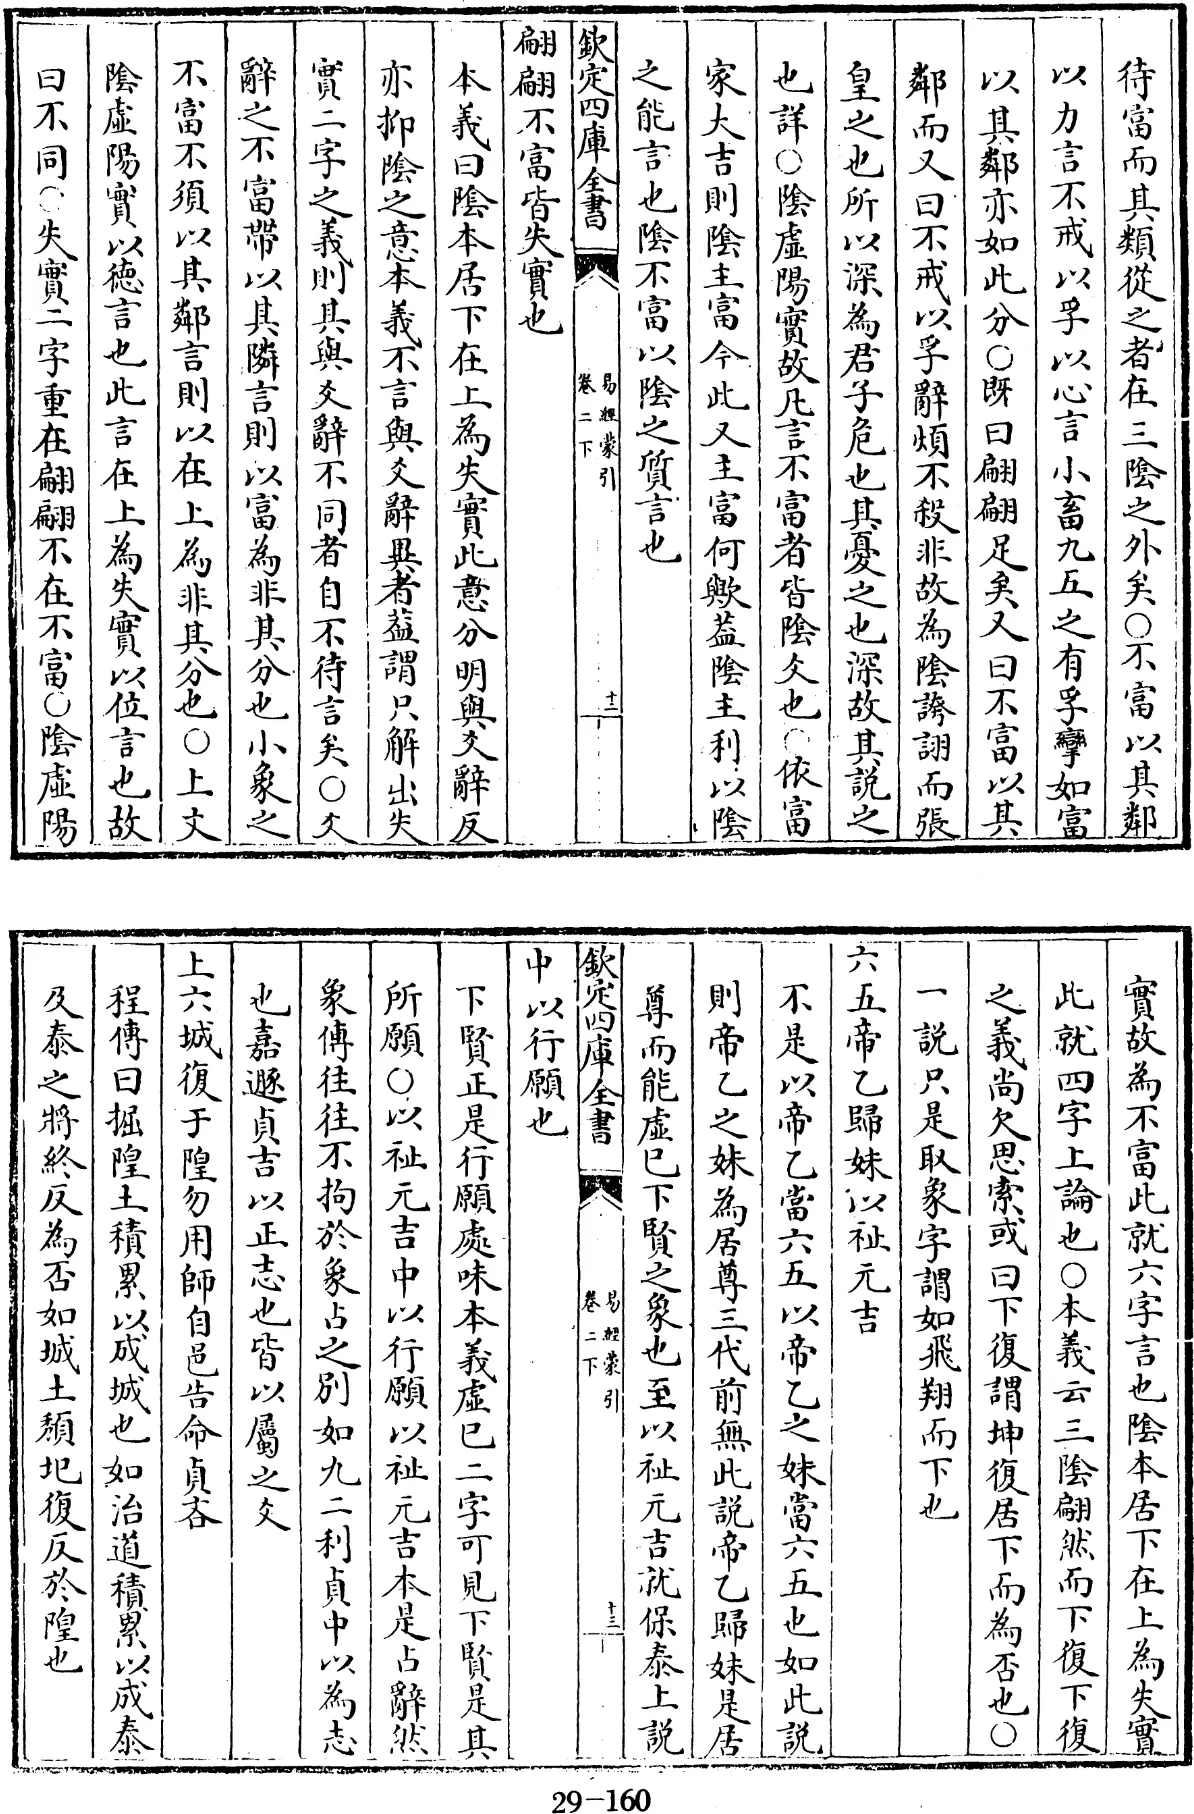 待富而其類從之者在三陰之外矣○不富以其鄰
以力言不戒以孚以心言小畜九五之有孚攣如富
以其鄰亦如此分○既曰翩翩足矣又曰不富以其
鄰而又曰不戒以孚辭煩不殺非故為陰誇詡而張
皇之也所以深為君子危也其憂之也深故其説之
也詳○陰虛陽實故凡言不富者皆陰爻也○依富
家大吉則陰主富今此又主富何歟葢陰主利以陰
之能言也陰不富以陰之質言也
欽定四庫全書
易經蒙引
卷二下
十二
翩翩不富皆失實也
本義曰陰本居下在上為失實此意分明與爻辭反
亦抑陰之意本義不言與爻辭異者葢謂只解出失
實二字之義則其與爻辭不同者自不待言矣○爻
辭之不富帶以其隣言則以富為非其分也小象之
不富不須以其鄰言則以在上為非其分也○上文
陰虛陽實以徳言也此言在上為失實以位言也故
曰不同○失實二字重在翩翩不在不富○陰虛陽
實故為不富此就六字言也陰本居下在上為失實
此就四字上論也○本義云三陰翩然而下復下復
之義尚欠思索或曰下復謂坤復居下而為否也○
一説只是取象字謂如飛翔而下也
六五帝乙歸妹以祉元吉
不是以帝乙當六五以帝乙之妹當六五也如此説
則帝乙之妹為居尊三代前無此説帝乙歸妹是居
尊而能虛已下賢之象也至以祉元吉就保泰上説
欽定四庫全書
易經蒙引
卷二下
十三
中以行願也
下賢正是行願處味本義虛已二字可見下賢是其
所願○以祉元吉中以行願以祉元吉本是占辭然
象傳往往不拘於象占之別如九二利貞中以為志
也嘉遯貞吉以正志也皆以屬之爻
上六城復于隍勿用師自邑告命貞吝
程傳曰掘隍土積累以成城也如治道積累以成泰
及泰之將終反為否如城土頽圮復反於隍也
29-160